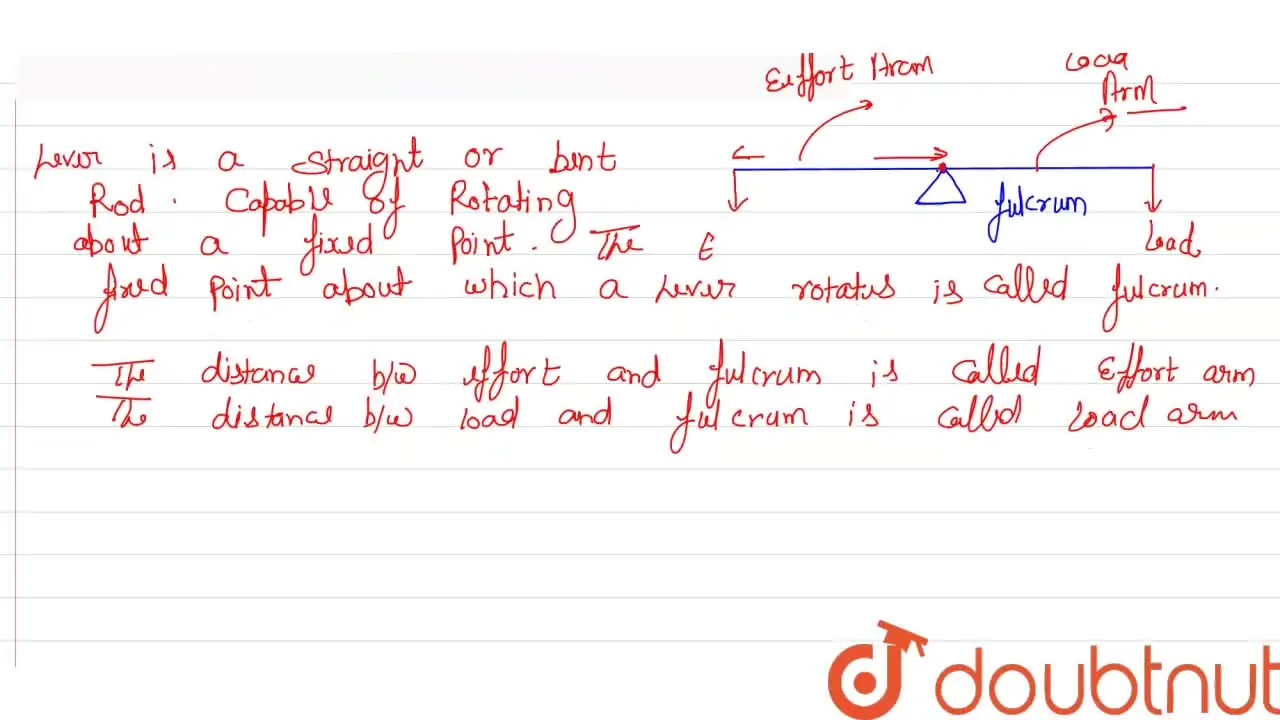 Effort Arm
Load
Arm
Lever is a straight or bent
Rod. Capable of Rotating
about a fixed Point. The E
fulcrum
Load
fixed Point about which a Lever rotates is called fulcrum.
The distance b/w effort and fulcrum is called Effort arm
The distance b/w load and fulcrum is called Load arm
doubtnut